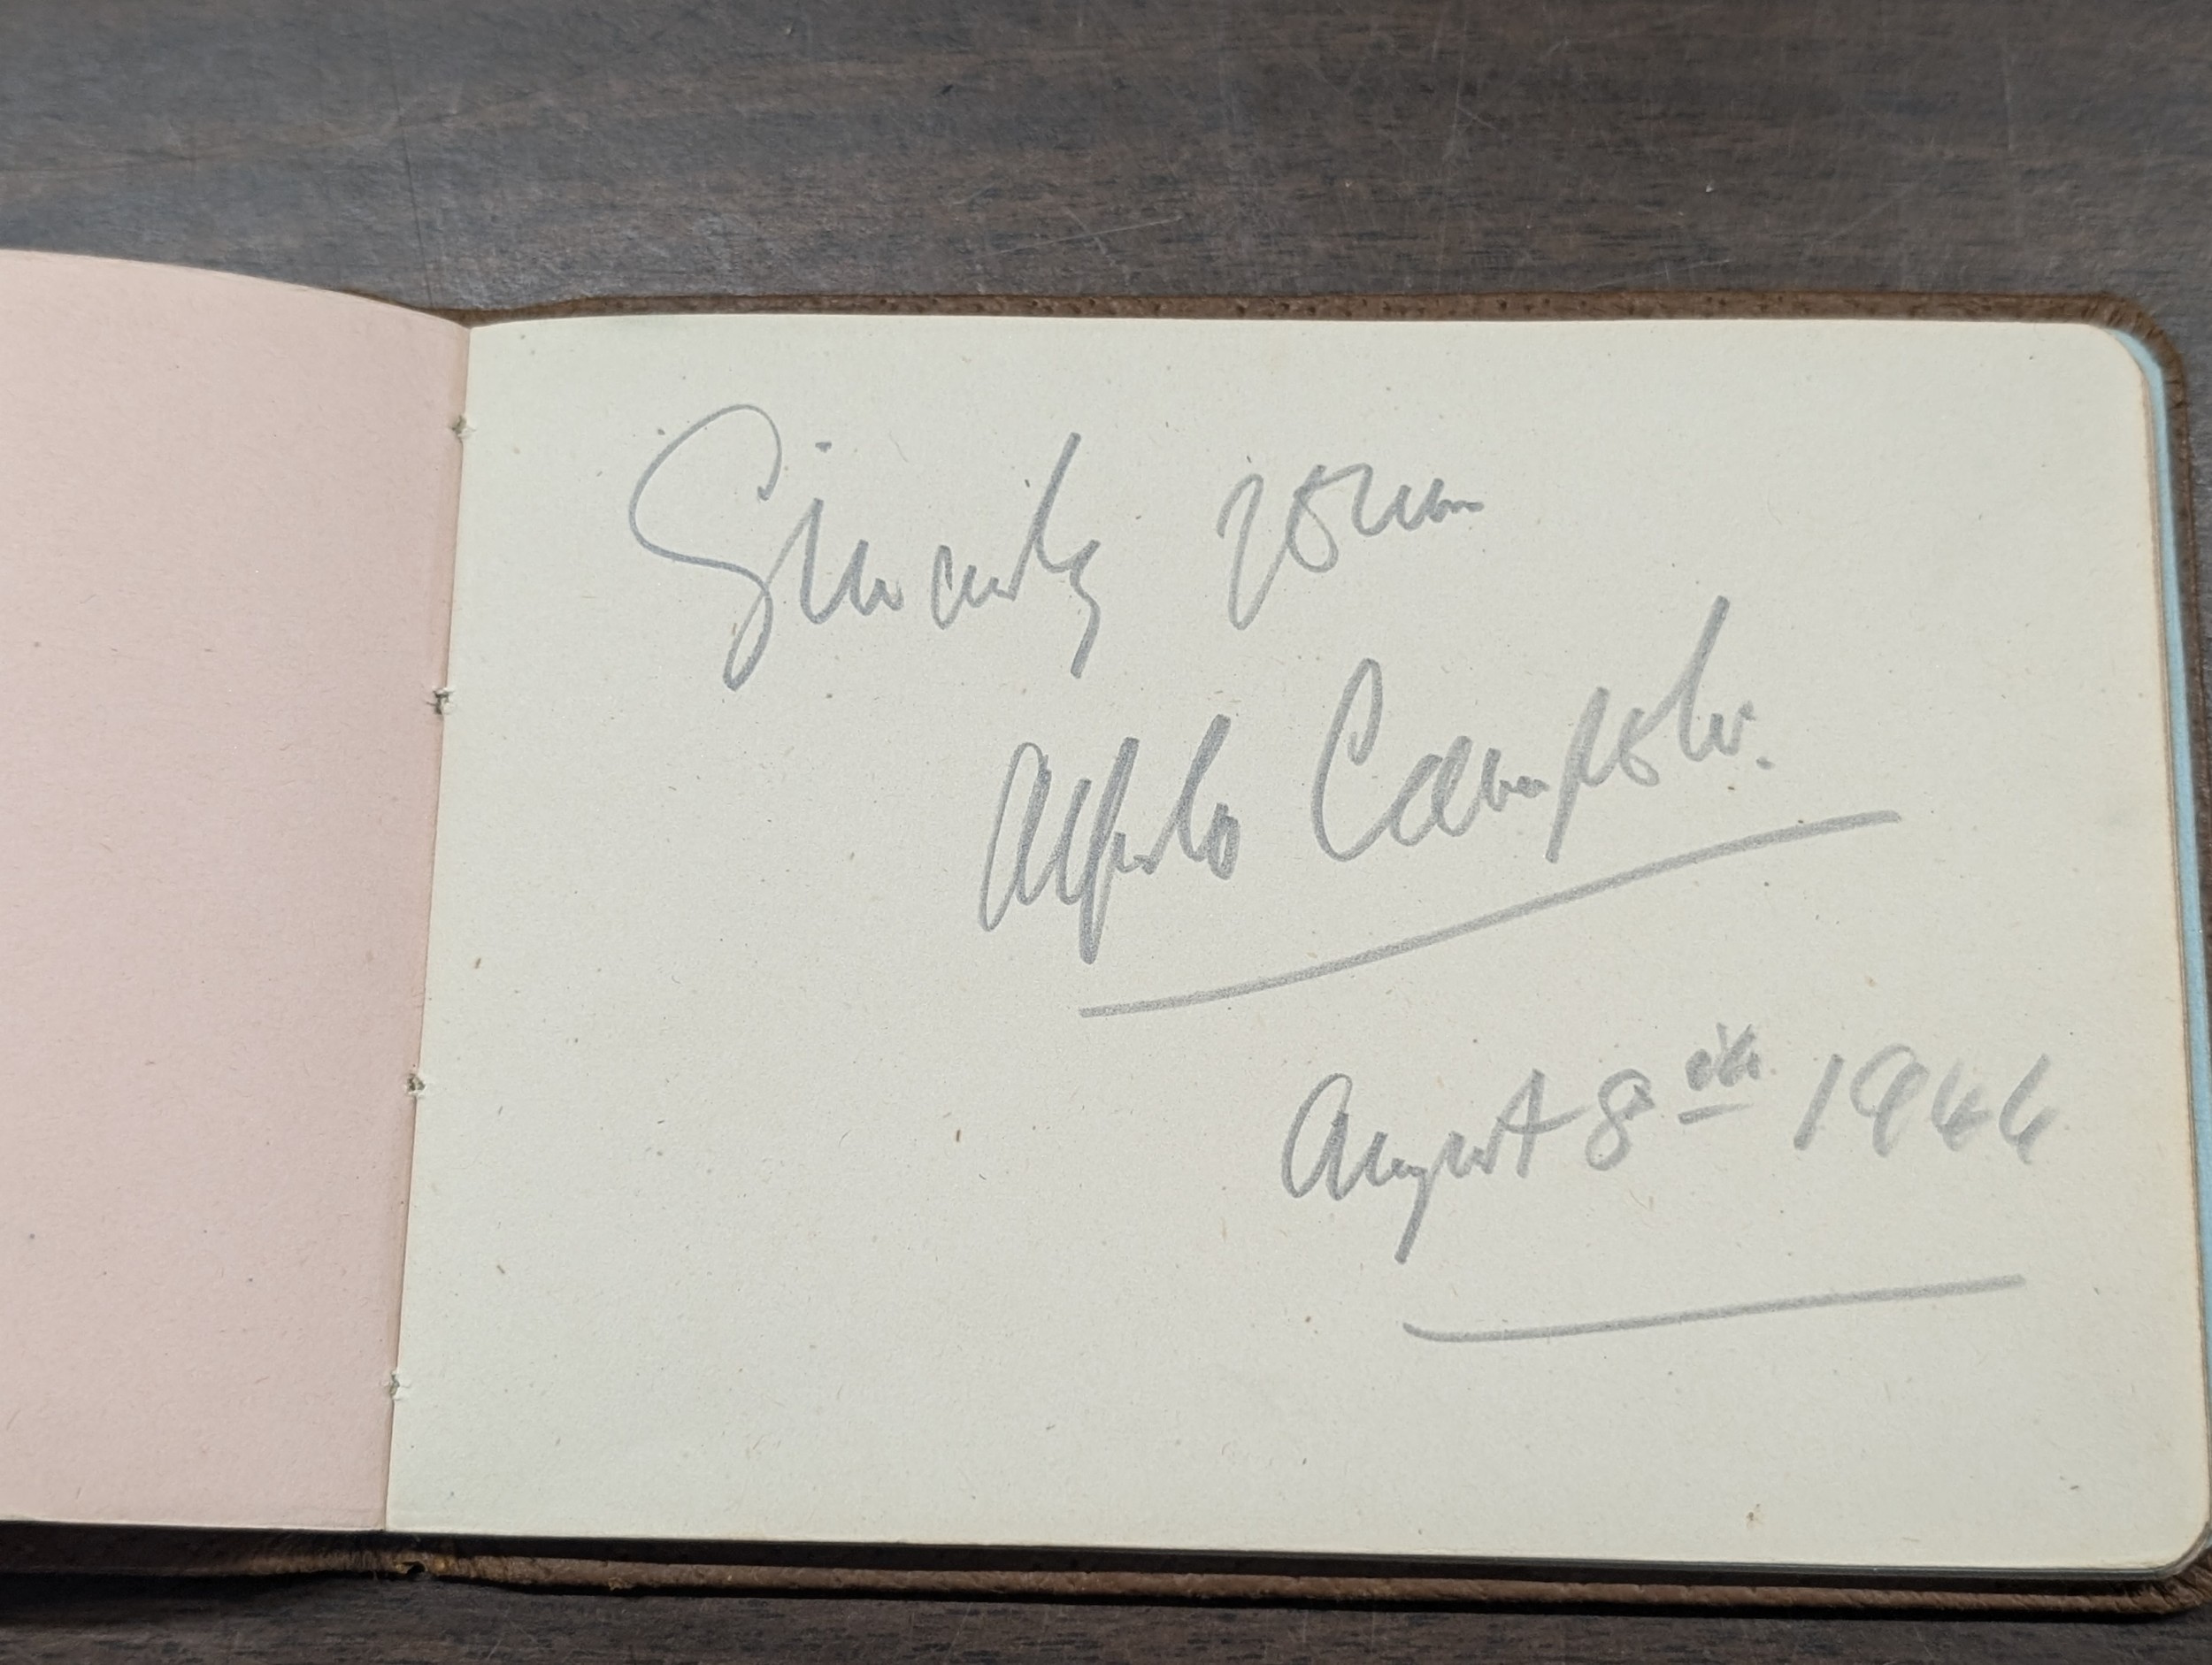 Sincerely yours
Alfredo Campoli.
August 8th 1944